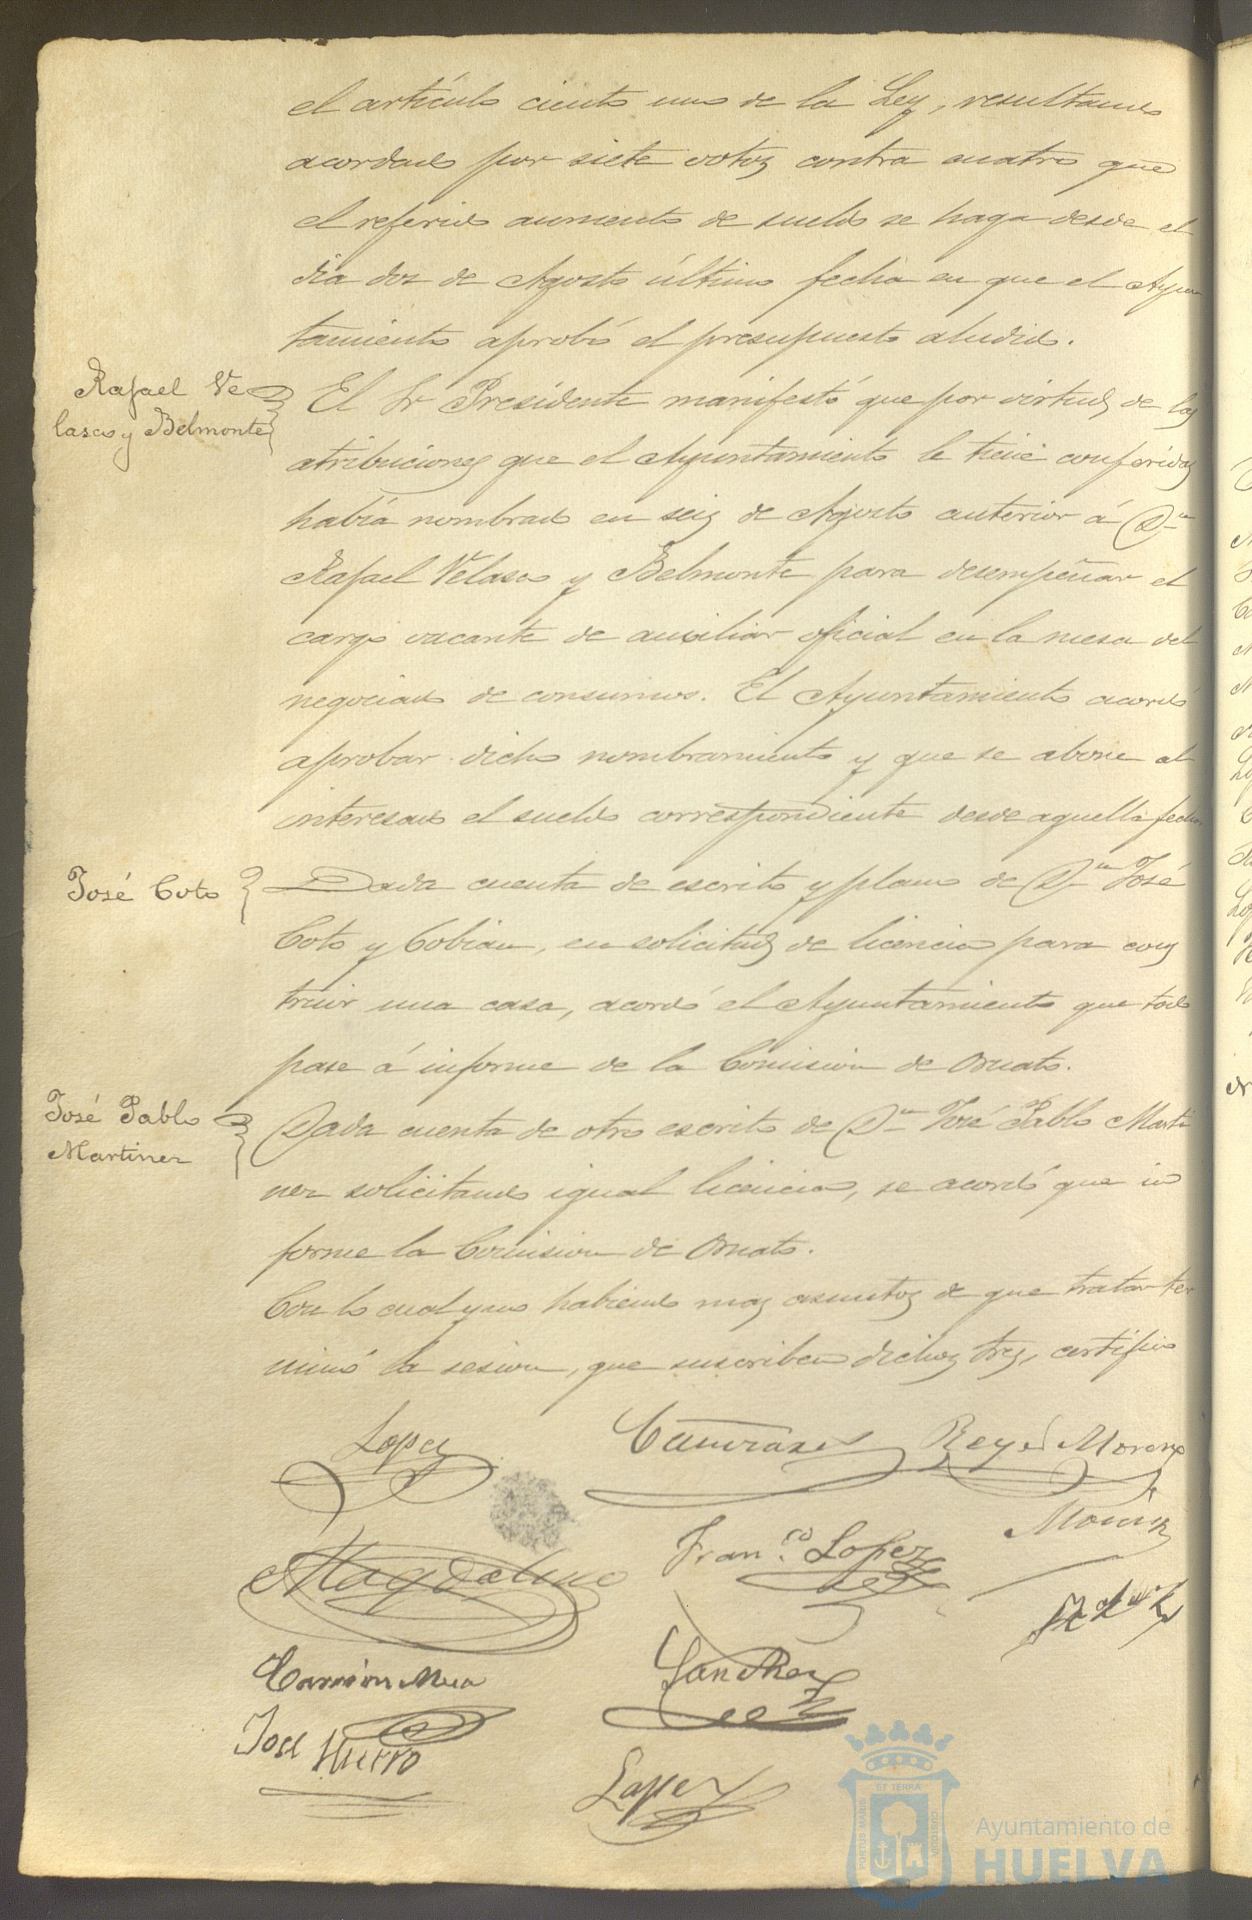 el artículo ciento uno de la Ley, resultando
acordado por siete votos contra cuatro que
el referido aumento de sueldo se haga desde el
dia dos de Agosto último fecha en que el Ayun
tamiento aprobó el presupuesto aludido.
Rafael Ve
lasco y Belmonte
El Sr Presidente manifestó que por virtud de las
atribuciones que el Ayuntamiento le tiene conferidas
había nombrado en seis de Agosto anterior á Dn
Rafael Velasco y Belmonte para desempeñar el
cargo vacante de auxiliar oficial en la mesa del
negociado de consumos. El Ayuntamiento acordó
aprobar dicho nombramiento y que se abone al
interesado el sueldo correspondiente desde aquella fecha.
José Coto
Dada cuenta de escrito y plano de Dn José
Coto y Cobian, en solicitud de licencia para cons
truir una casa, acordó el Ayuntamiento que todo
pase á informe de la Comision de Ornato.
José Pablo
Martinez
Dada cuenta de otro escrito de Dn José Pablo Marti
nez solicitando igual licencia, se acordó que in
forme la Comision de Ornato.
Con lo cual y no habiendo mas asuntos de que tratar ter
minó la sesion, que suscriben dichos Sres, certifico
Lopez
Reyes Moreno
Franco. Lopez
Magdaleno
Sanchez
José
Lopez
PORTUS MARIS
ET TERRÆ
CUSTODIA
Ayuntamiento de
HUELVA